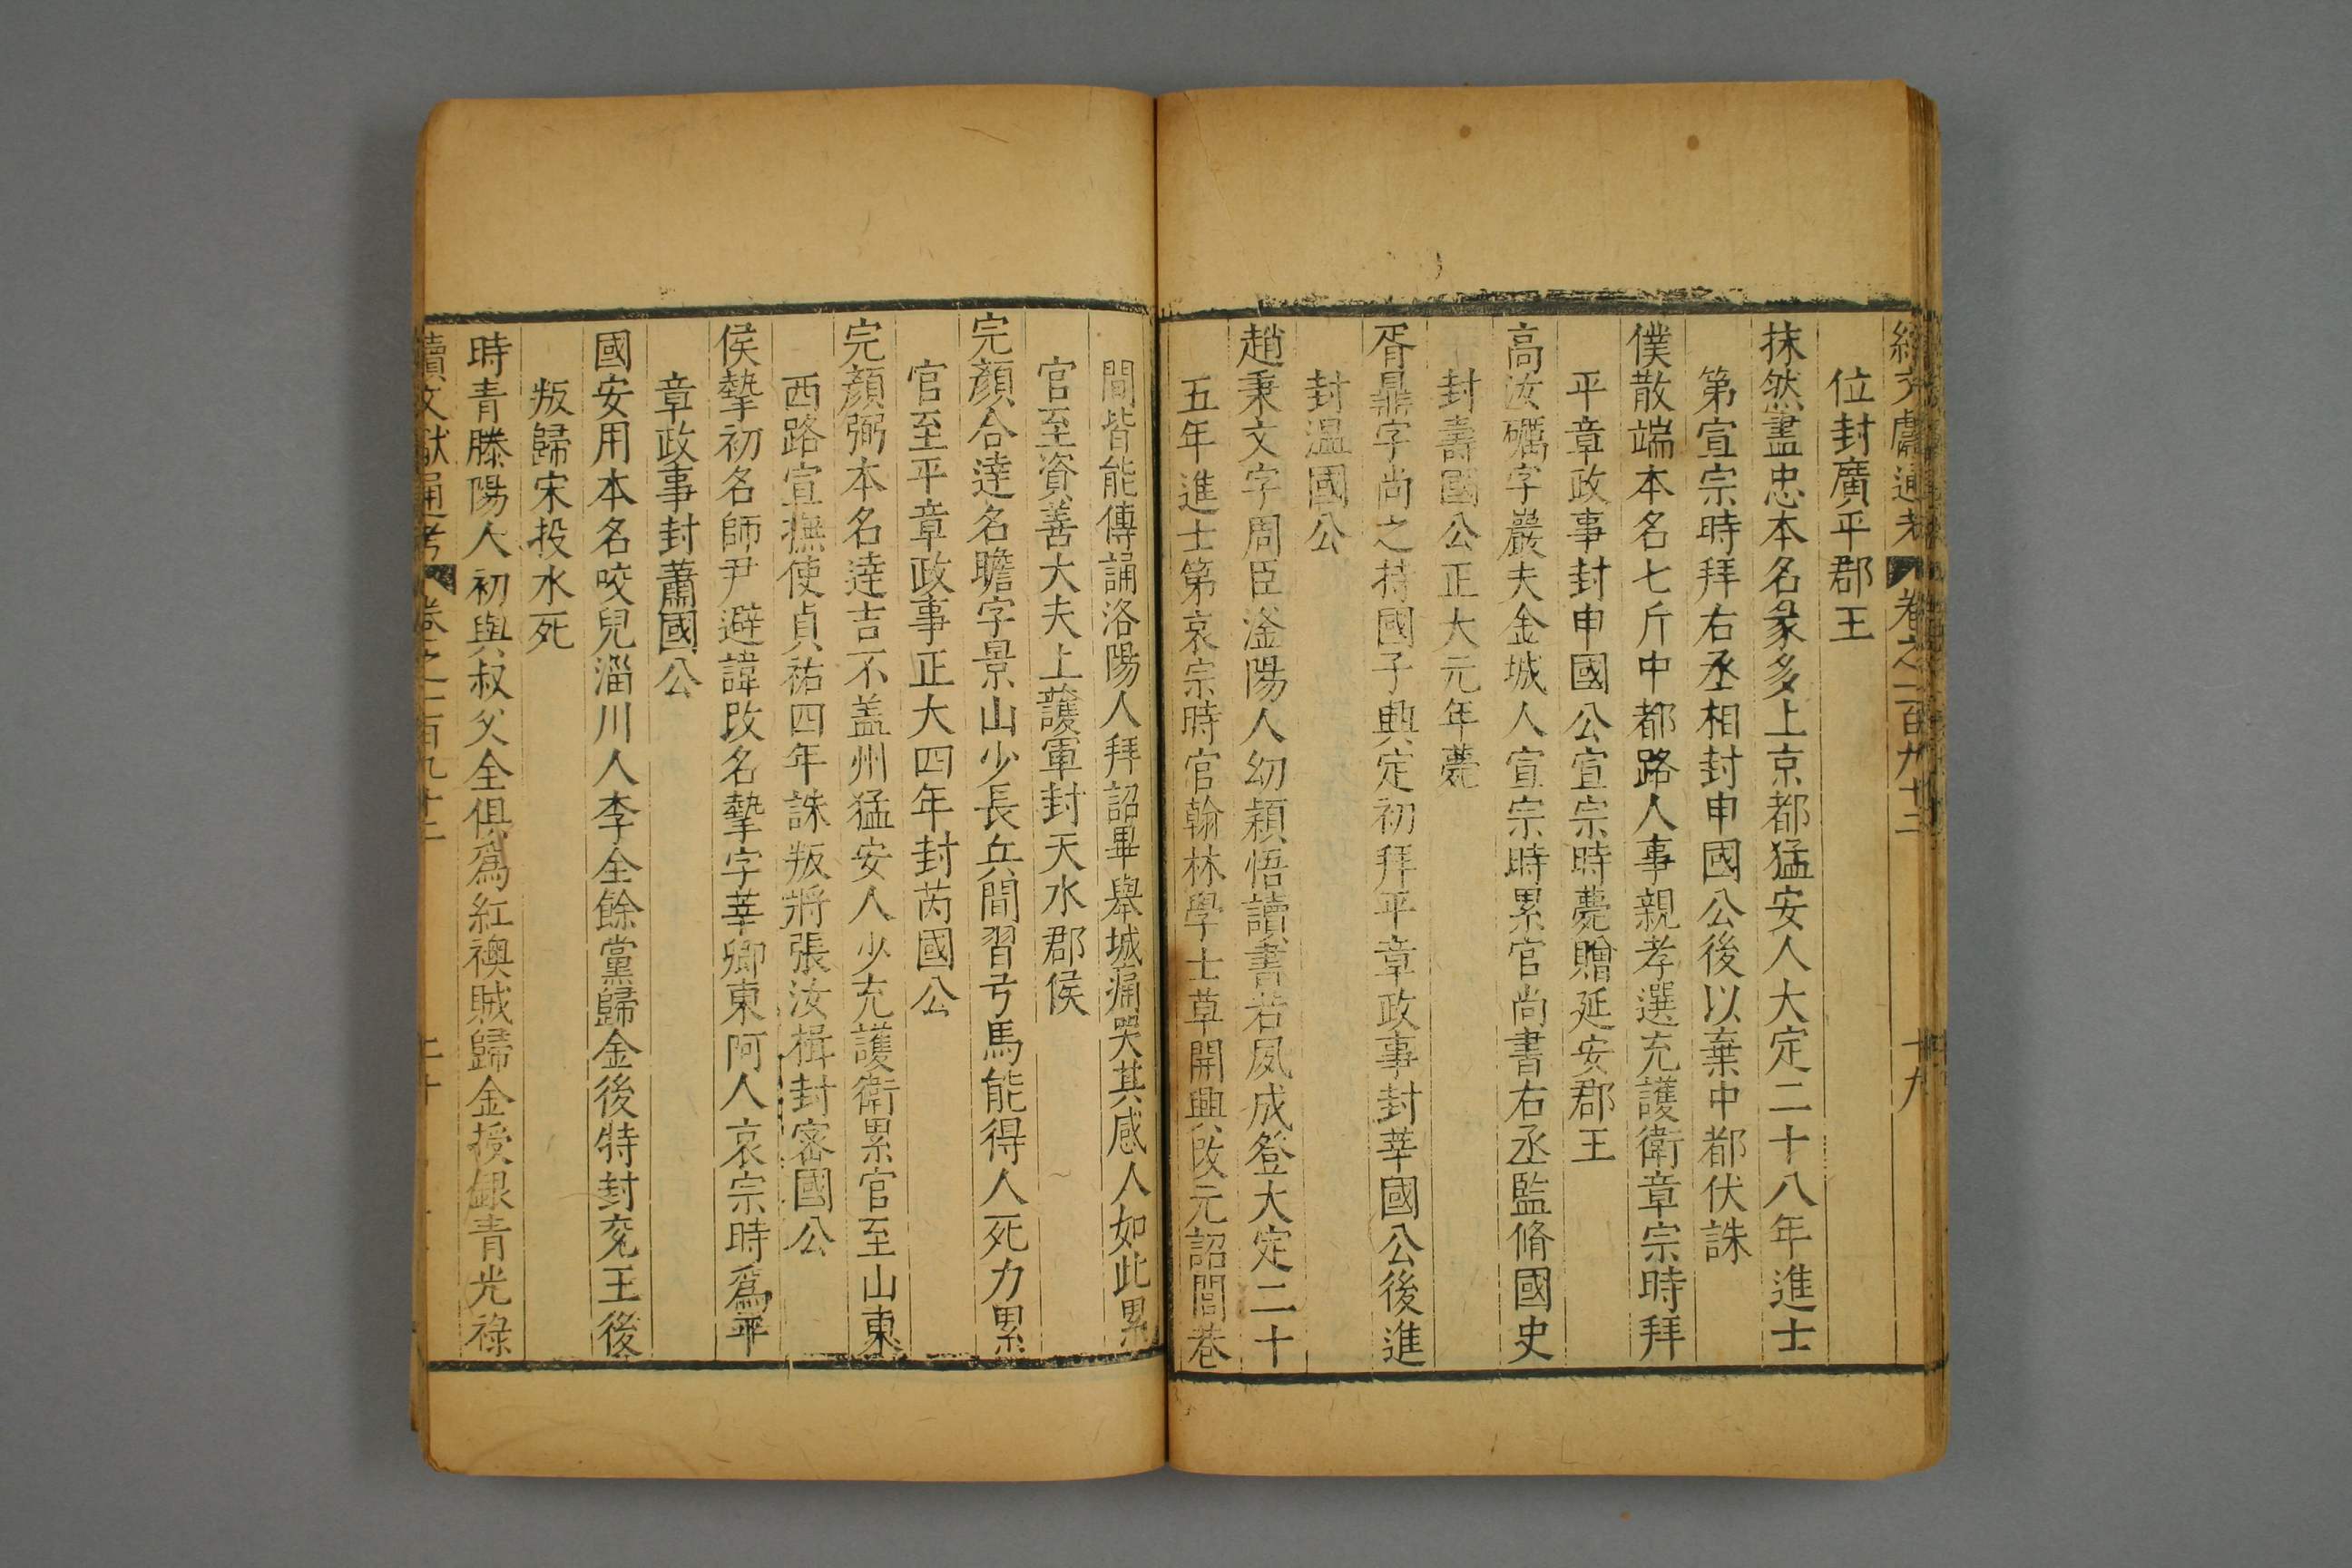 續文獻通考 卷之一百九十二 十九
位封廣平郡王
抹然盡忠本名彖多上京都猛安人大定二十八年進士
第宣宗時拜右丞相封申國公後以棄中都伏誅
僕散端本名七斤中都路人事親孝選充護衛章宗時拜
平章政事封申國公宣宗時薨贈延安郡王
高汝礪字巖夫金城人宣宗時累官尚書右丞監脩國史
封壽國公正大元年薨
胥鼎字尚之持國子興定初拜平章政事封莘國公後進
封溫國公
趙秉文字周臣滏陽人幼穎悟讀書若夙成登大定二十
五年進士第哀宗時官翰林學士草開興改元詔閭巷
間皆能傳誦洛陽人拜詔畢舉城痛哭其感人如此累
官至資善大夫上護軍封天水郡侯
完顏合達名瞻字景山少長兵間習弓馬能得人死力累
官至平章政事正大四年封芮國公
完顏弼本名達吉不盖州猛安人少充護衛累官至山東
西路宣撫使貞祐四年誅叛將張汝楫封密國公
侯摯初名師尹避諱改名摯字莘卿東阿人哀宗時爲平
章政事封蕭國公
國安用本名咬兒淄川人李全餘黨歸金後特封兖王後
叛歸宋投水死
時青滕陽人初與叔父全俱爲紅襖賊歸金授銀青光祿
續文獻通考 卷之一百九十二 二十